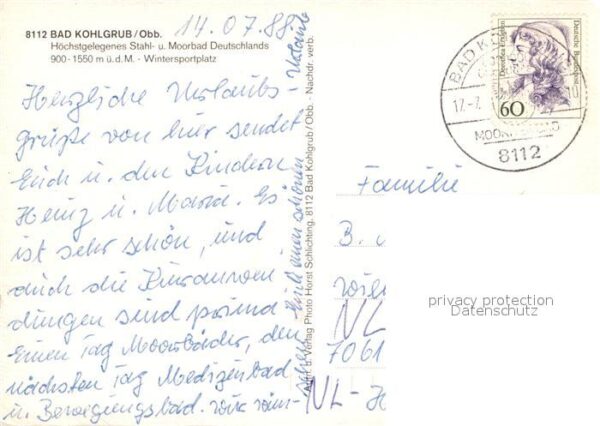 8112 BAD KOHLGRUB/Obb.
Höchstgelegenes Stahl- u. Moorbad Deutschlands
900-1550 m ü.d.M. - Wintersportplatz
14.07.88
Herzliche Urlaubs-
grüße von hier sendet
Euch u. den Kindern
Heinz u. Maria. Es
ist sehr schön, und
auch die Kuranwen
dungen sind prima
Einen Tag Moorbäder, den
nächsten Tag Medizinbad
u. Bewegungsbad. Wir wün-
schen Euch einen schönen
Urlaub
u. Verlag Photo Horst Schlichting, 8112 Bad Kohlgrub/Obb. - Nachdr. verb.
Deutsche Bundespost
Dorothea Erxleben
60
BAD K
8112
Familie
B.
NL
7061
NL-
privacy protection
Datenschutz